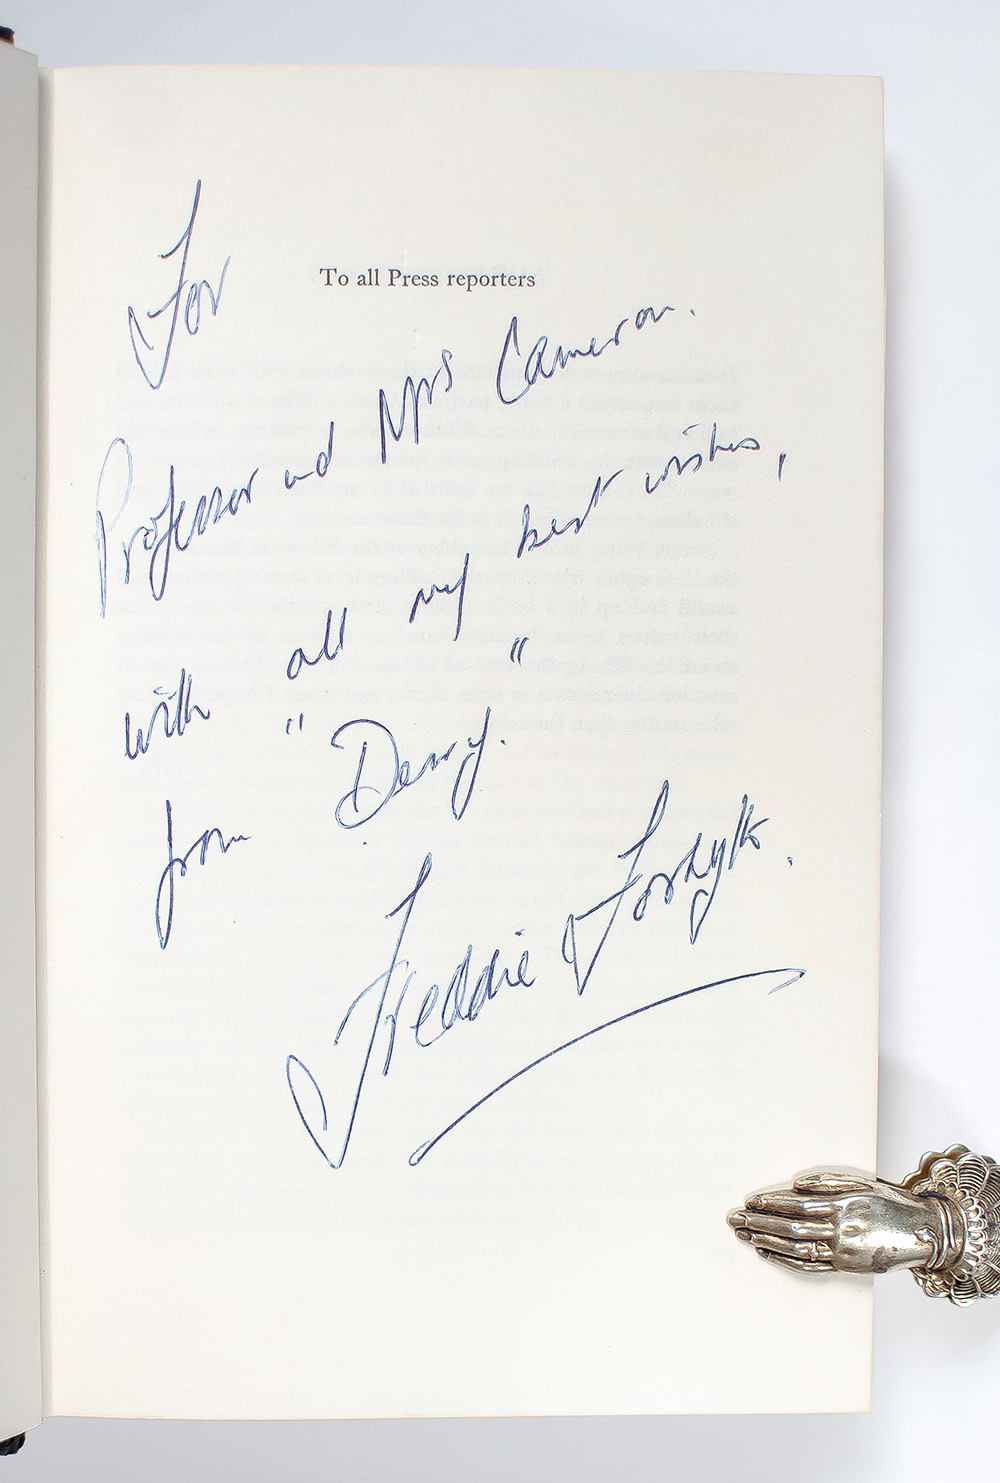 To all Press reporters
For
Professor and Mrs Cameron.
with all my best wishes,
from "Derry."
Freddie Forsyth.